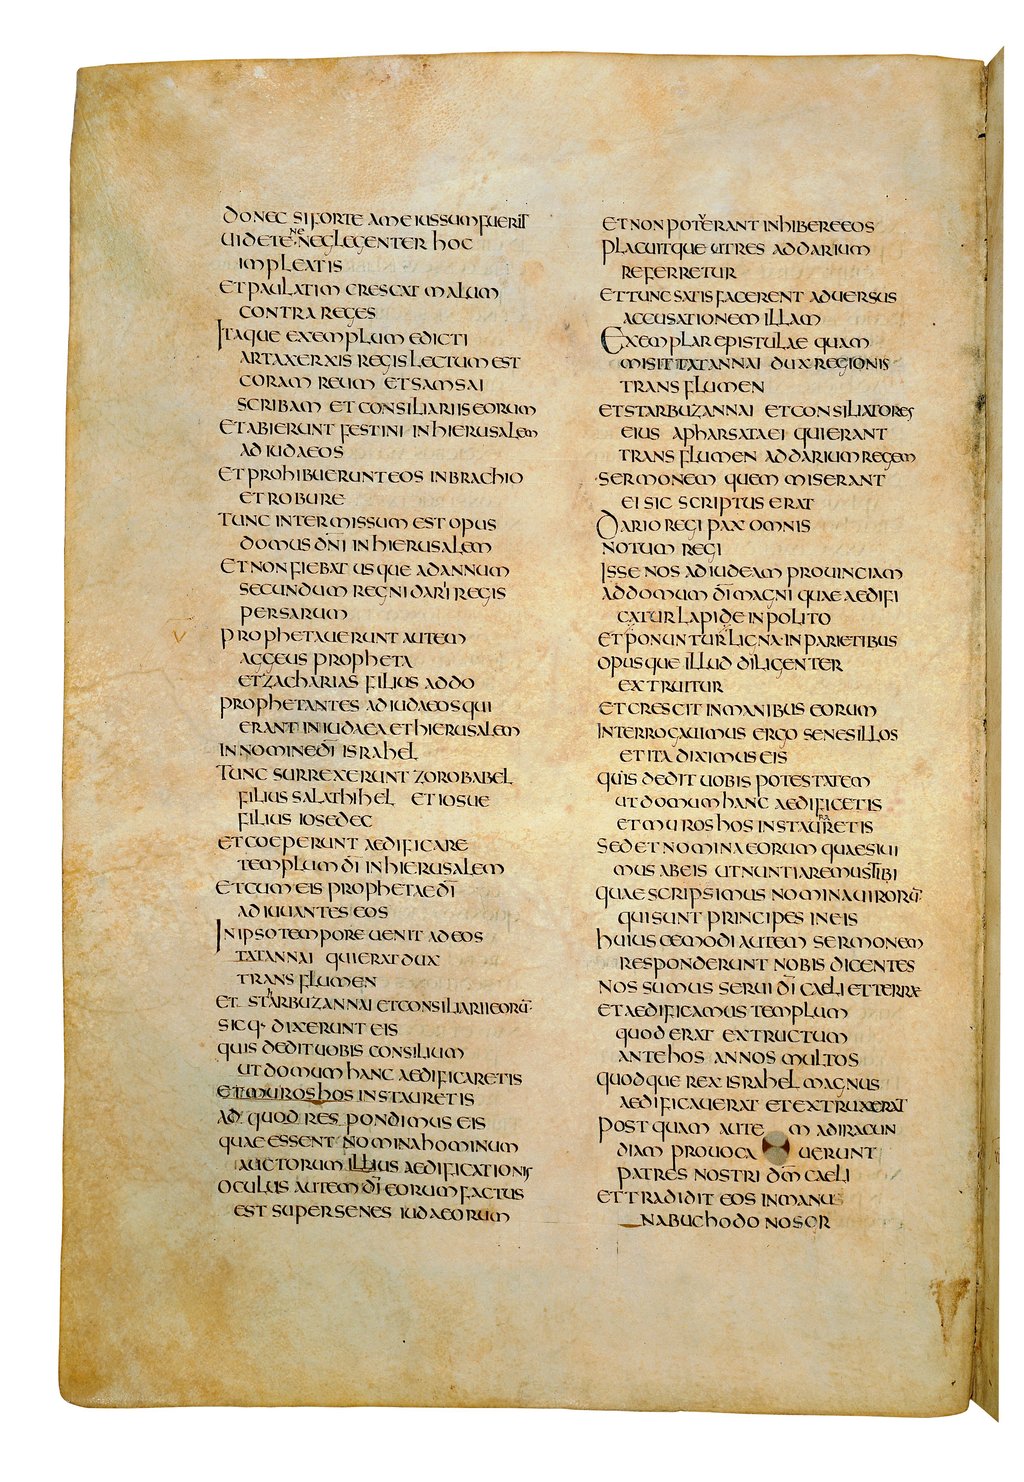 DONEC SI FORTE A ME IUSSUM FUERIT
UIDETE NE NEGLEGENTER HOC
IMPLEATIS
ET PAULATIM CRESCAT MALUM
CONTRA REGES
ITAQUE EXEMPLUM EDICTI
ARTAXERXIS REGIS LECTUM EST
CORAM REUM ET SAMSAI
SCRIBAM ET CONSILIARIIS EORUM
ET ABIERUNT FESTINI IN HIERUSALEM
AD IUDAEOS
ET PROHIBUERUNT EOS IN BRACHIO
ET ROBURE
TUNC INTERMISSUM EST OPUS
DOMUS DN̄I IN HIERUSALEM
ET NON FIEBAT USQUE AD ANNUM
SECUNDUM REGNI DARII REGIS
PERSARUM
PROPHETAUERUNT AUTEM
AGGEUS PROPHETA
ET ZACHARIAS FILIUS ADDO
PROPHETANTES AD IUDAEOS QUI
ERANT IN IUDAEA ET HIERUSALEM
IN NOMINE DĪ ISRAHEL
TUNC SURREXERUNT ZOROBABEL
FILIUS SALATHIHEL ET IOSUE
FILIUS IOSEDEC
ET COEPERUNT AEDIFICARE
TEMPLUM DĪ IN HIERUSALEM
ET CUM EIS PROPHETAE DĪ
ADIUUANTES EOS
IN IPSO TEMPORE UENIT AD EOS
TATANNAI QUI ERAT DUX
TRANS FLUMEN
ET STHARBUZANNAI ET CONSILIARII EORŪ
SIC Q· DIXERUNT EIS
QUIS DEDIT UOBIS CONSILIUM
UT DOMUM HANC AEDIFICARETIS
ET MUROS HOS INSTAURETIS
AD QUOD RESPONDIMUS EIS
QUAE ESSENT NOMINA HOMINUM
AUCTORUM ILLIUS AEDIFICATIONIS
OCULUS AUTEM DĪ EORUM FACTUS
EST SUPER SENES IUDAEORUM
ET NON POTUERANT INHIBERE EOS
PLACUITQUE UT RES AD DARIUM
REFERRETUR
ET TUNC SATIS FACERENT ADUERSUS
ACCUSATIONEM ILLAM
EXEMPLAR EPISTULAE QUAM
MISIT TATANNAI DUX REGIONIS
TRANS FLUMEN
ET STARBUZANNAI ET CONSILIATORES
EIUS APHARSATAEI QUI ERANT
TRANS FLUMEN AD DARIUM REGEM
SERMONEM QUEM MISERANT
EI SIC SCRIPTUS ERAT
DARIO REGI PAX OMNIS
NOTUM REGI
ISSE NOS AD IUDEAM PROUINCIAM
AD DOMUM DĪ MAGNI QUAE AEDIFI
CATUR LAPIDE INPOLITO
ET PONUNTUR LIGNA IN PARIETIBUS
OPUSQUE ILLUD DILIGENTER
EXTRUITUR
ET CRESCIT IN MANIBUS EORUM
INTERROGAUIMUS ERGO SENES ILLOS
ET ITA DIXIMUS EIS
QUIS DEDIT UOBIS POTESTATEM
UT DOMUM HANC AEDIFICETIS
ET MUROS HOS INSTAURARETIS
SED ET NOMINA EORUM QUAESIUI
MUS AB EIS UT NUNTIAREMUS TIBI
QUAE SCRIPSIMUS NOMINA UIRORŪ
QUI SUNT PRINCIPES IN EIS
HUIUSCEMODI AUTEM SERMONEM
RESPONDERUNT NOBIS DICENTES
NOS SUMUS SERUI DĪ CAELI ET TERRAE
ET AEDIFICAMUS TEMPLUM
QUOD ERAT EXTRUCTUM
ANTE HOS ANNOS MULTOS
QUODQUE REX ISRAHEL MAGNUS
AEDIFICAUERAT ET EXTRUXERAT
POSTQUAM AUTEM AD IRACUN
DIAM PROUOCAUERUNT
PATRES NOSTRI DM̄ CAELI
ET TRADIDIT EOS IN MANUS
NABUCHODONOSOR